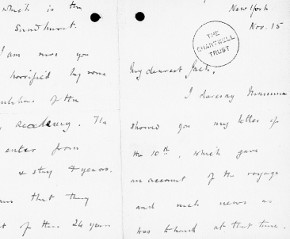 which is the
Sandhurst.
I am sure you
horrified by some
of the
academy. The
enter from
& stay 4 years.
that they
of 24 years
New York
Nov. 15
THE
CHARTWELL
TRUST
My dearest Jack,
I daresay Mamma
showed you my letter of
the 10th, which gave
an account of the voyage
and such news as
was to hand at that time.